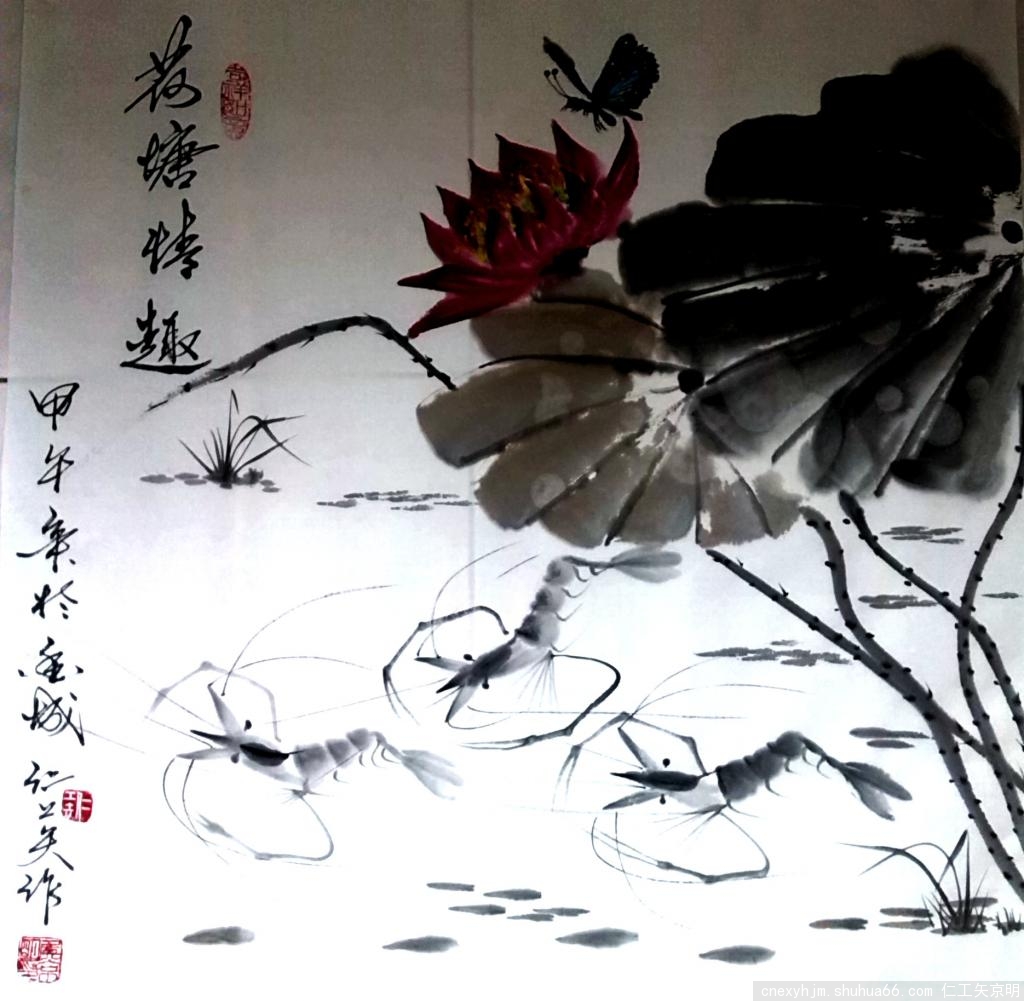 荷塘情趣
甲午年於金城
仁工矢作
cnexyhjm shuhua66 com 仁工矢京明